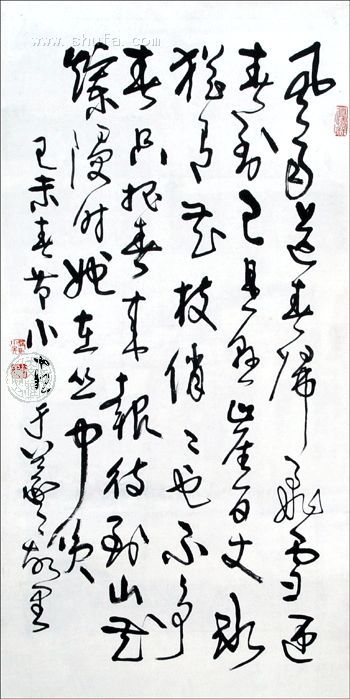 www.shufa.com
风雨送春归飞雪迎
春到已是悬崖百丈冰
犹有花枝俏〻也不争
春只把春来报待到山花
烂漫时她在丛中笑
己未春节小
于羲之故里